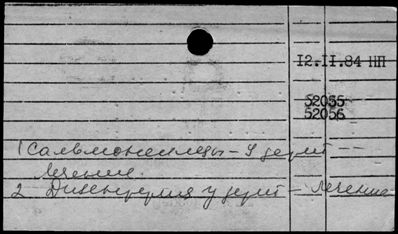 12.II.84 НП
52055
52056
1 Сальмонеллезы – у детей –
лечение.
2 Дизентерия у детей – лечение